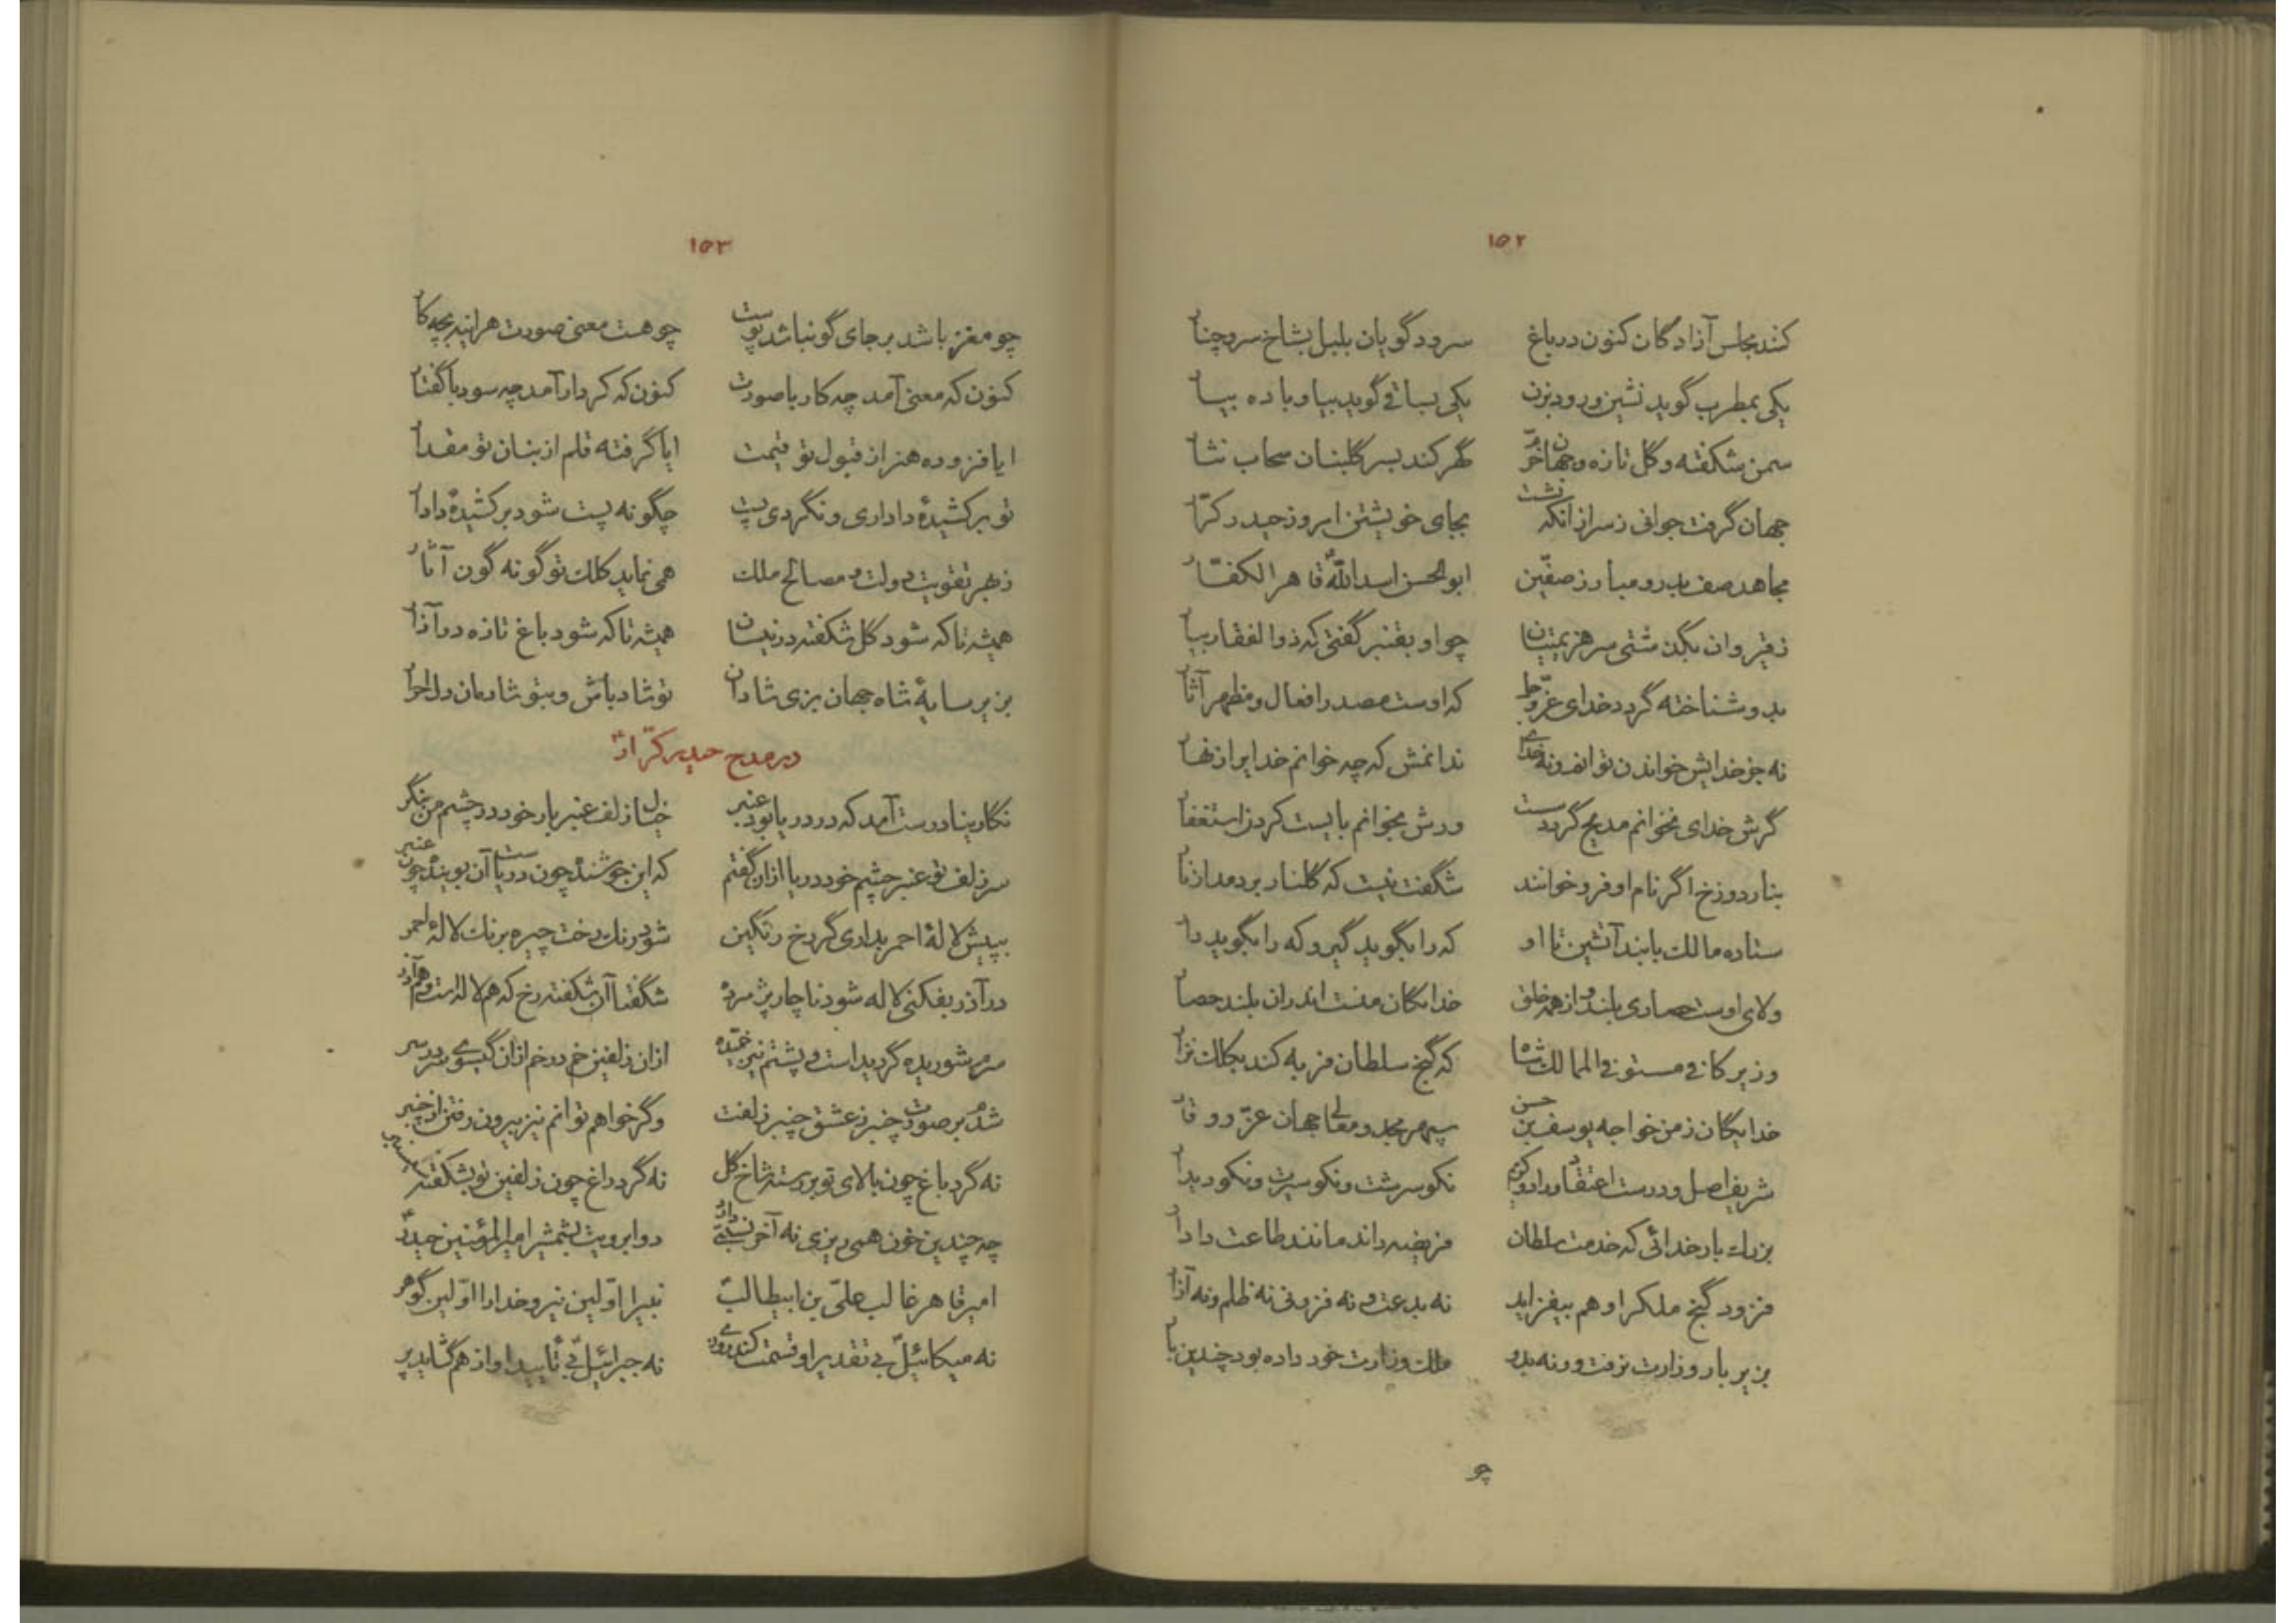 ۱۵۲
کند مجلس آزادگان کنون در باغ سرود گویان بلبل بشاخ سرو چنار
یکی بمطرب گوید نشین و رود بزن یکی بساقی گوید بیا و باده بیار
سمن شکفته و گل تازه و جهان خرّم گهر کند بسر گلبنان سحاب نثار
جهان گرفت جوانی ز سر از آنکه نشست بجای خویشتن امروز حیدر کرّار
مجاهد صف بدر و مبارز صفّین ابوالحسن اسدالله قاهر الکفّار
ز قیروان بگذشتی سر هزیمتیان چو او بقنبر گفتی که ذوالفقار بیار
بدو شناخته گردد خدای عزّ و جل که اوست مصدر افعال و مظهر آثار
نه جز خدایش خواندن توانم و نه خدای ندانمش که چه خوانم خدایرا زنهار
گرش خدای نخوانم مدیح گردد سست ورش بخوانم بایست کردن استغفار
بنار دوزخ اگر نام او فرو خوانند شگفت نیست که گلنار بردمد از نار
ستاده مالک با بند آتشین تا او که را بگوید گیر و که را بگوید دار
ولای اوست حصاری بلند و از همه خلق خدایگان منست اندران بلند حصار
وزیر کافی مستوفی الممالک شاه که گنج سلطان فربه کند بکلک نزار
خدایگان زمن خواجه یوسف بن حسن سپهر مجد و معالی جهان عزّ و وقار
شریف اصل و درست اعتقاد و راد و کریم نکو سرشت و نکو سیرت و نکو دیدار
بزرک بار خدائی که خدمت سلطان فریضه داند مانند طاعت دادار
فزود گنج ملک را و هم بیفزاید نه بدعت و نه فزونی نه ظلم و نه آزار
بزیر بار وزارت نرفت ورنه بدو ملک وزارت خود داده بود چندین بار
چو
۱۵۳
چو مغز باشد بر جای گو نباشد پوست چو هست معنی صورت هر آینه بچه کار
کنون که معنی آمد چه کار با صورت کنون که کردار آمد چه سود با گفتار
ایا فزوده هنر از قبول تو قیمت ایا گرفته قلم از بنان تو مقدار
تو برکشیدهٔ داداری و نگردی پست چگونه پست شود برکشیدهٔ دادار
ز بهر تقویت دولت و مصالح ملک همی نماید کلک تو گونه گون آثار
همیشه تا که شود گل شکفته در نیسان همیشه تا که شود باغ تازه در آذار
بزیر سایهٔ شاه جهان بزی شادان تو شاد باش و بتو شادمان دل احرار
در مدح حیدر کرّار
نگارینا درست آمد که در دریا بود عنبر خیال زلف عنبر بار خود در چشم من بنگر
سر زلف تو عنبر چشم خود دریا از آن گفتم که این جوشنده چون دریاست آن بوینده چون عنبر
بپیش لالهٔ احمر بداری گر رخ رنگین شود رنگ رخت چیره برنگ لالهٔ احمر
در آذر بفکنی لاله شود ناچار پژمرده شگفتا آن شکفته رخ که هم لاله است و هم آذر
سرم شوریده گردیداست و پشتم نیز خمیده از آن زلفین خم در خم از آن گیسوی سر در سر
شدم بر صورت چنبر ز عشق چنبر زلفت وگر خواهم توانم نیز بیرون رفتن از چنبر
نه گرد باغ چون بالای تو بر رسته شاخ گل نه گرد راغ چون زلفین تو بشکفته سیسنبر
چه چندین خون همی ریزی نه آخر نسبتی دارد دو ابرویت بشمشیر امیرالمؤمنین حیدر
امیر قاهر غالب علیّ بن ابیطالب نبیرا اوّلین نیرو خدا را اوّلین گوهر
نه میکائیل بی تقدیر او قسمت کند روزی نه جبرائیل بی تأیید او از هم گشاید پر